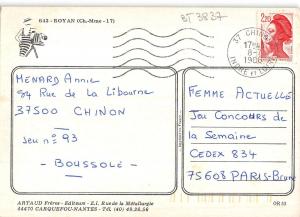 643 - ROYAN (Ch.-Mme - 17)
BT 3837
37 CHINON
17H
8-
1988
INDRE ET LOIRE
2,20
MENARD Annie
84 Rue de La Libourne
37500 CHINON
Jeu n° 93
BOUSSOLE
FEMME ACTUELLE
Jeu Concours de
la Semaine
CEDEX 834
75608 PARIS-Brune
ARTAUD Frères - Editeurs - Z.I. Rue de la Métallurgie
44470 CARQUEFOU-NANTES - Tél. (40) 49.26.56
OR 10